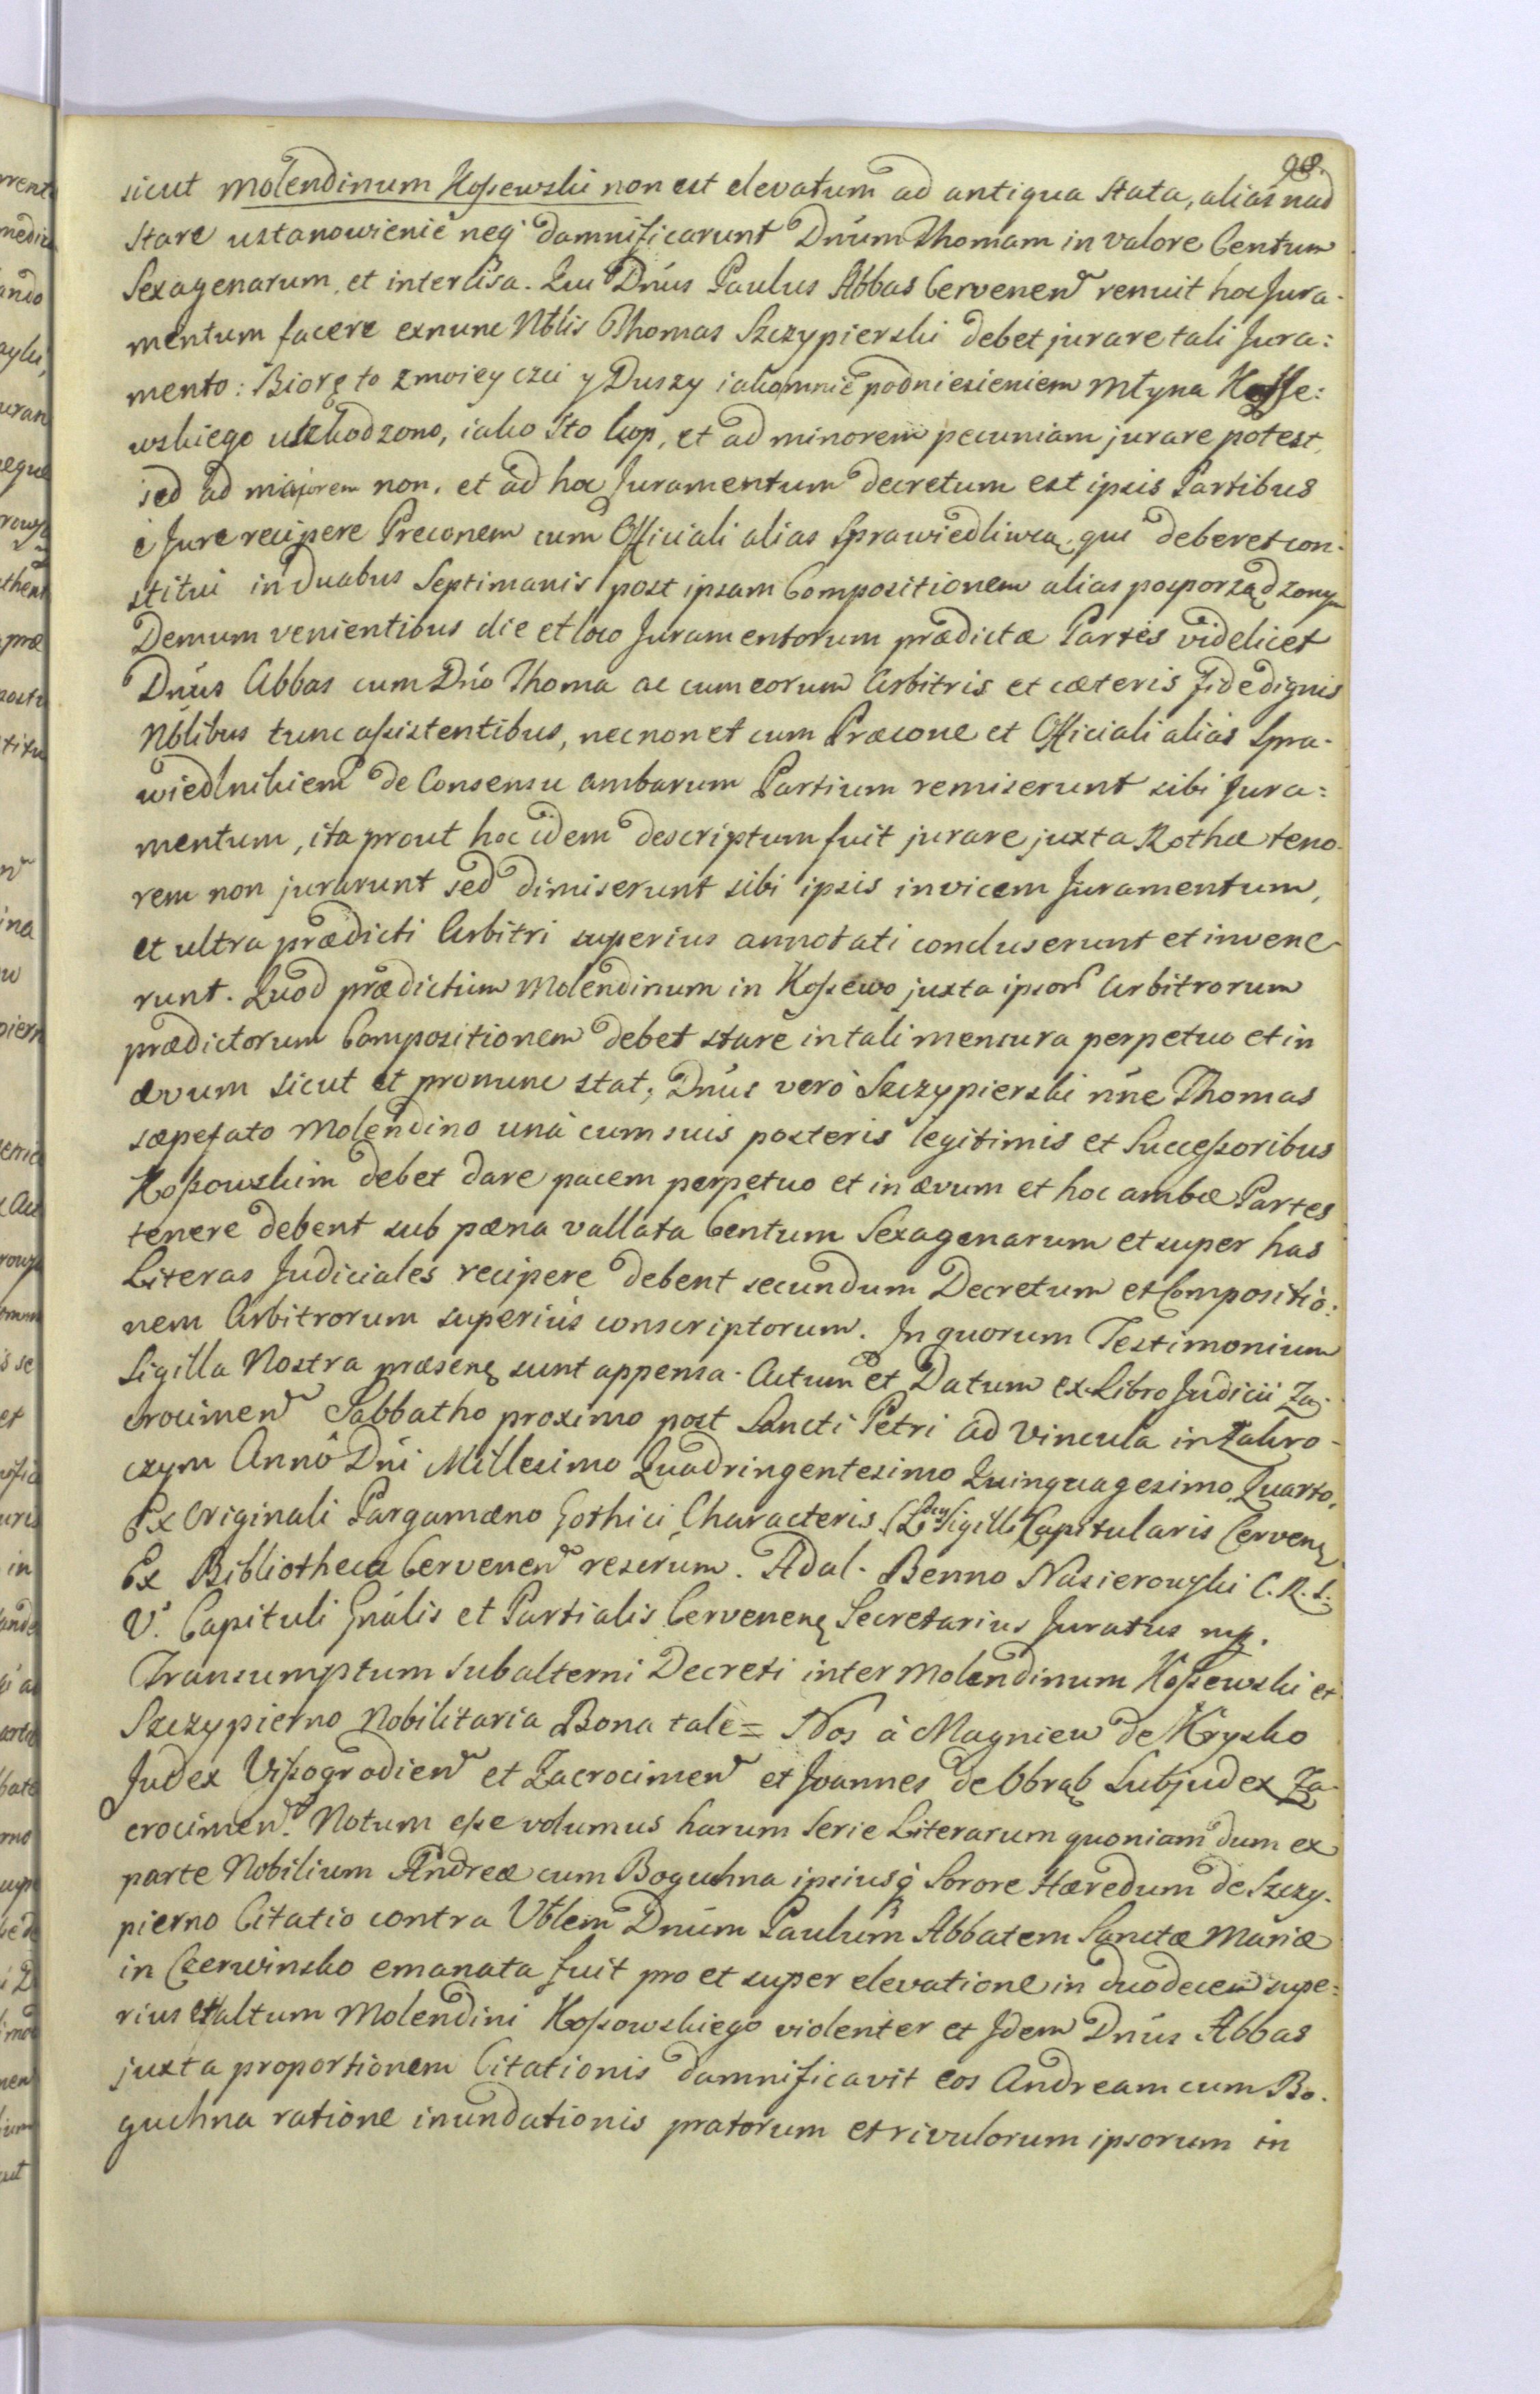 98.
sicut molendinum Kossewski non est elevatum ad antiqua stata, alias nad
stare ustanowienie neq damnificarunt Dnum Thomam in valore Centum
Sexagenarum, et interlisa. Qui Dnus Paulus Abbas Cervenen renuit hoc Jura-
mentum facere exnunc Nblis Thomas Szczypierski debet jurare tali Jura:
mento: Biorę to z moiey czci y Duszy iakomnie podniesieniem Młyna Kosse:
wskiego uszkodzono, iako Sto kop, et ad minorem pecuniam jurare potest,
sed ad majorem non. et ad hoc Juramentum decretum est ipsis Partibus
è Jure recipere Preconem cum Officiali alias Sprawiedliwcą, qui deberet con-
stitui in duabus Septimanis post ipsam Compositionem alias posporządzonym
Demum venientibus die et loco Juramentorum prædictæ Partes videlicet
Dnus Abbas cum Dno Thoma ac cum eorum Arbitris et cæteris fide dignis
Nblibus tunc assistentibus, necnon et cum Præcone et Officiali alias Spra-
wiedlnikiem de Consensu ambarum Partium remiserunt sibi Jura:
mentum, ita prout hoc idem descriptum fuit jurare juxta Rothæ teno-
rem non jurarunt sed dimiserunt sibi ipsis invicem Juramentum,
et ultra prædicti Arbitri superius annotati concluserunt et invene-
runt. Quod prædictum Molendinum in Kossewo juxta ipsor Arbitrorum
prædictorum Compositionem debet stare in tali mensura perpetuo et in
ævum sicut et pronunc stat; Dnus verò Szczypierski nne Thomas
sæpefato Molendino unà cum suis posteris legitimis et Successoribus
Kossowskim debet dare pacem perpetuo et in ævum et hoc ambæ Partes
tenere debent sub pæna vallata Centum Sexagenarum et super has
Literas Judiciales recipere debent secundum Decretum et Compositio:
nem Arbitrorum superius conscriptorum. In quorum Testimonium
Sigilla Nostra præsenę sunt appensa. Actum et Datum ex Libro Judicii Za-
crocimen Sabbatho proximo post Sancti Petri ad Vincula in Zakro-
czym Annô Dni Millesimo Quadringentesimo Quinquagesimo Quarto.
Ex Originali Pargamæno Gothici Characteris (Locus Sigilli Capitularis Cervenę
Ex Bibliotheca Cervenen rescrium. Adal. Benno Nasierowski C. R. L.
V. Capituli Gnalis et Partialis Cervenenę Secretarius Juratus mp.
Transumptum subalterni Decreti inter Molendinum Kossewski et
Szczypierno Nobilitaria Bona tale = Nos à Magniew de Krysko
Judex Vissogrodien et Zacrocimen et Joannes de Obrąb Subjudex Za-
crocimen. Notum esse volumus harum serie Literarum quoniam dum ex
parte Nobilium Andreæ cum Boguchna ipsiusq Sorore Hæredum de Szczy-
pierno Citatio contra Vblem Dnum Paulum Abbatem Sanctæ Mariæ
in Czerwinsko emanata fuit pro et super elevatione in duodecem supe:
rius et altum Molendini Kossowskiego violenter et Idem Dnus Abbas
juxta proportionem Citationis damnificavit eos Andream cum Bo-
guchna ratione inundationis pratorum et rivulorum ipsorum in